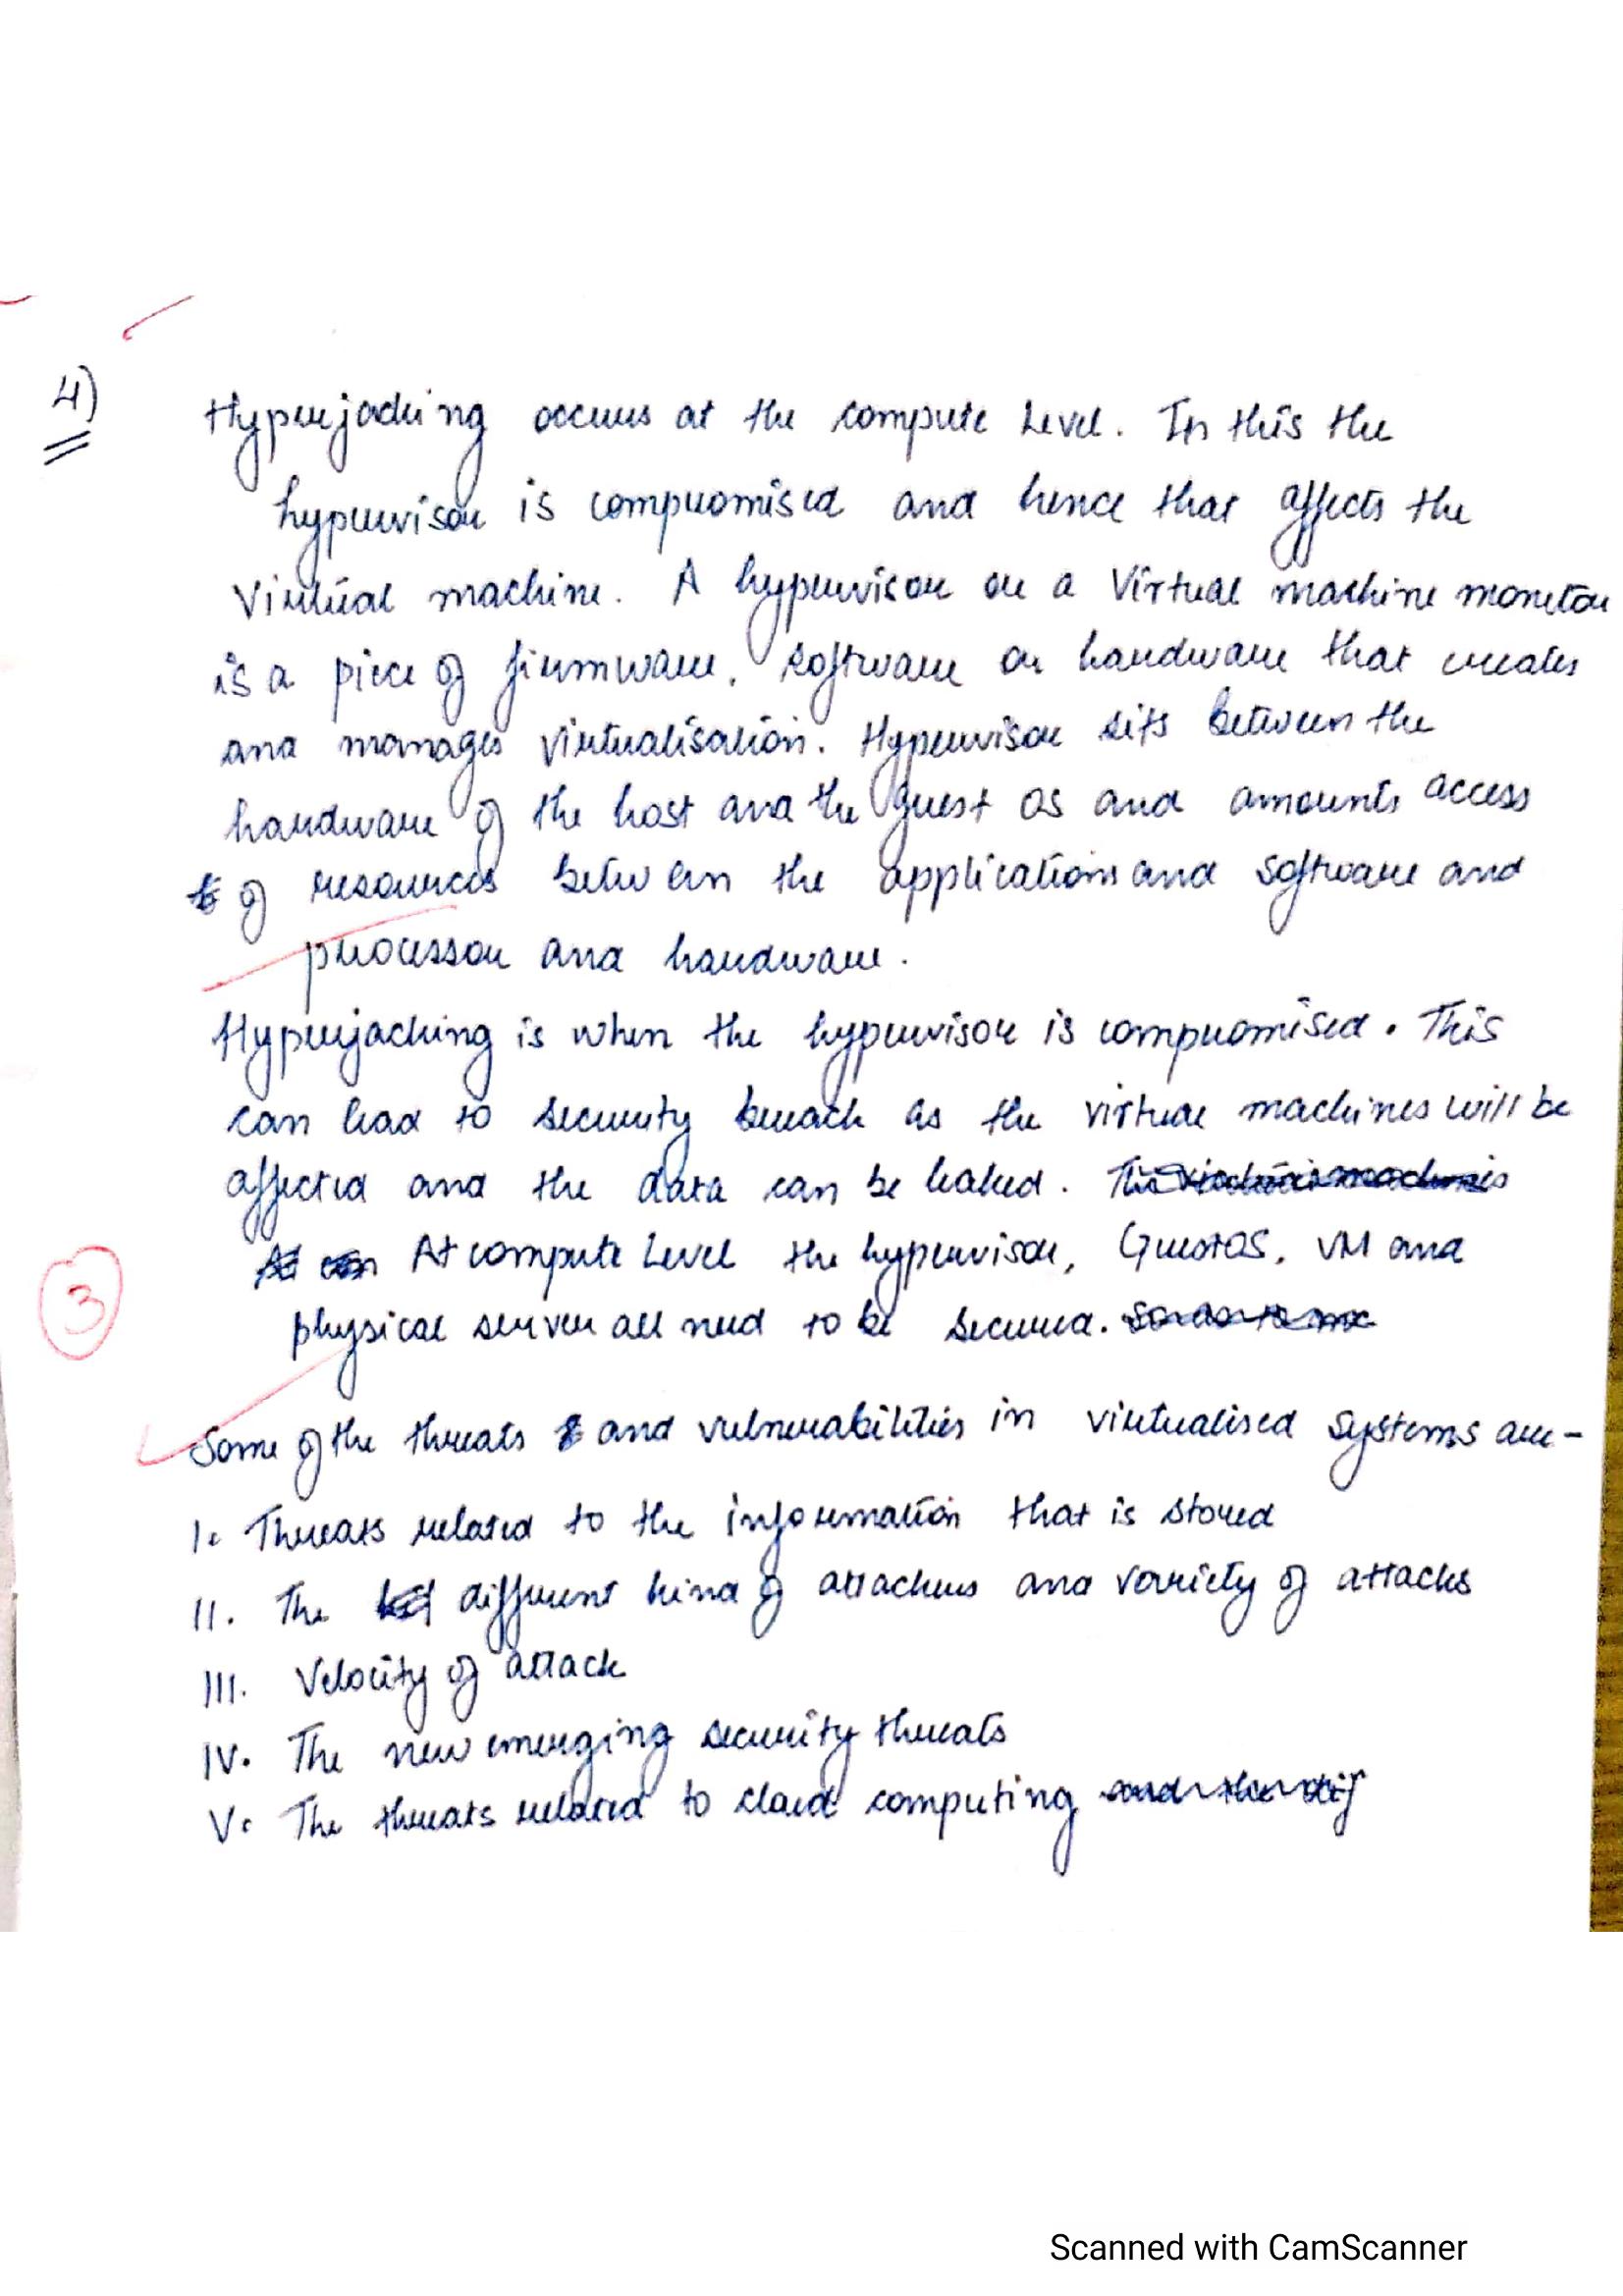 4) Hyperjacking occurs at the compute level. In this the
hypervisor is compromised and hence that affects the
Virtual machine. A hypervisor or a Virtual machine monitor
is a piece of firmware, software or hardware that creates
and manages virtualisation. Hypervisor sits between the
hardware of the host and the guest OS and amounts access
of resources between the applications and software and
processor and hardware.
Hyperjacking is when the hypervisor is compromised. This
can lead to security breach as the virtual machines will be
affected and the data can be leaked.
At compute Level the hypervisor, GuestOS, VM and
3
physical server all need to be secured.
Some of the threats and vulnerabilities in virtualised systems are-
I. Threats related to the information that is stored
II. The different kind of attackers and variety of attacks
III. Velocity of attack
IV. The new emerging security threats
V. The threats related to cloud computing
Scanned with CamScanner